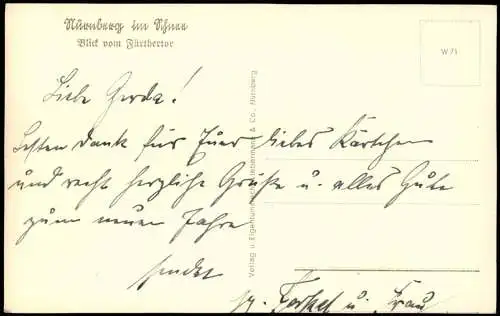 Nürnberg im Schnee
Blick vom Fürthertor
W 71
Liebe Gerda!
Besten Dank für Euer liebes Kärtchen
und recht herzliche Grüße u. alles Gute
zum neuen Jahre
sendet
u. Frau
Verlag u. Eigentum & Co., Nürnberg